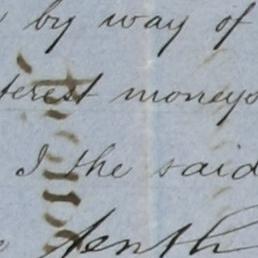 by way of
terest moneys
I the said
tenth